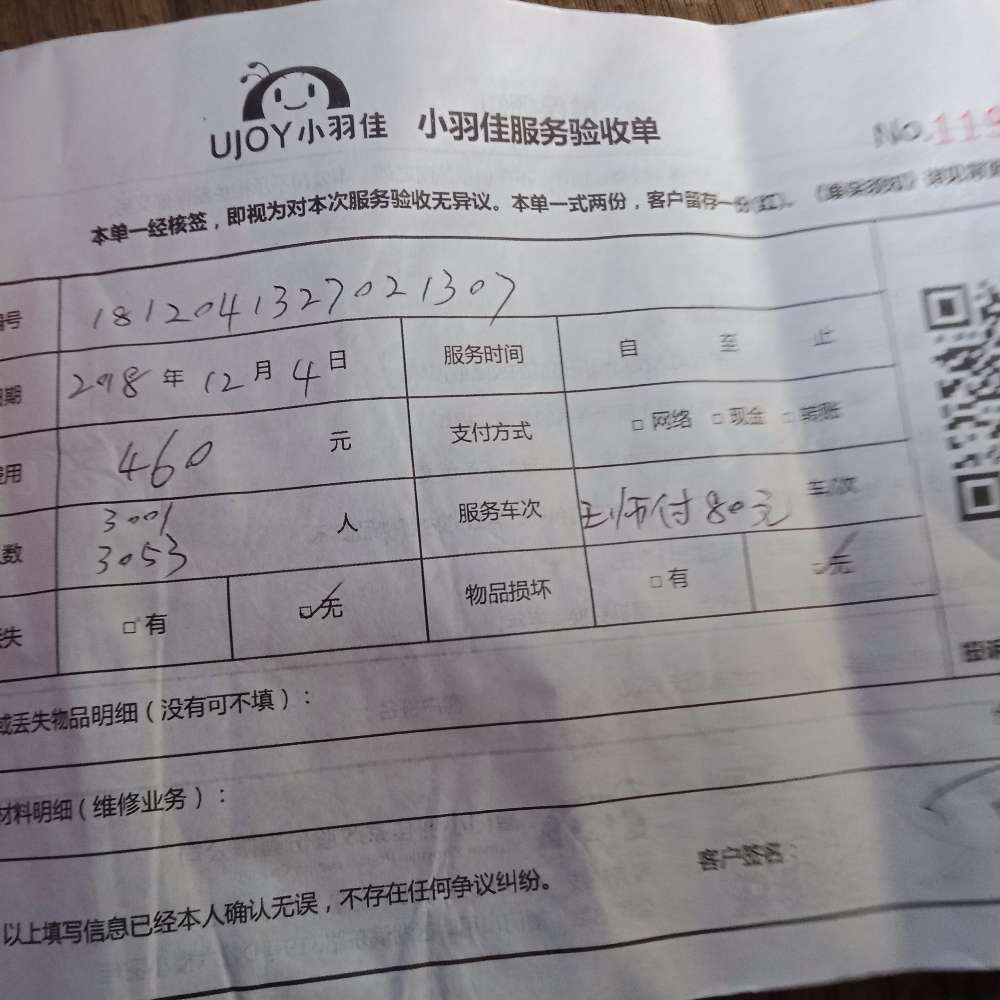 UJOY小羽佳 小羽佳服务验收单 No.119
本单一经核签，即视为对本次服务验收无异议。本单一式两份，客户留存一份(红)。
号 1812041327021307
期 2018年12月4日 服务时间 自 至 止
用 460元 支付方式 □网络 □现金 □转账
数 3001 3053 人 服务车次 王师付80元 车/次
失 □有 □无 物品损坏 □有 □无
或丢失物品明细（没有可不填）：
材料明细（维修业务）：
以上填写信息已经本人确认无误，不存在任何争议纠纷。 客户签名：